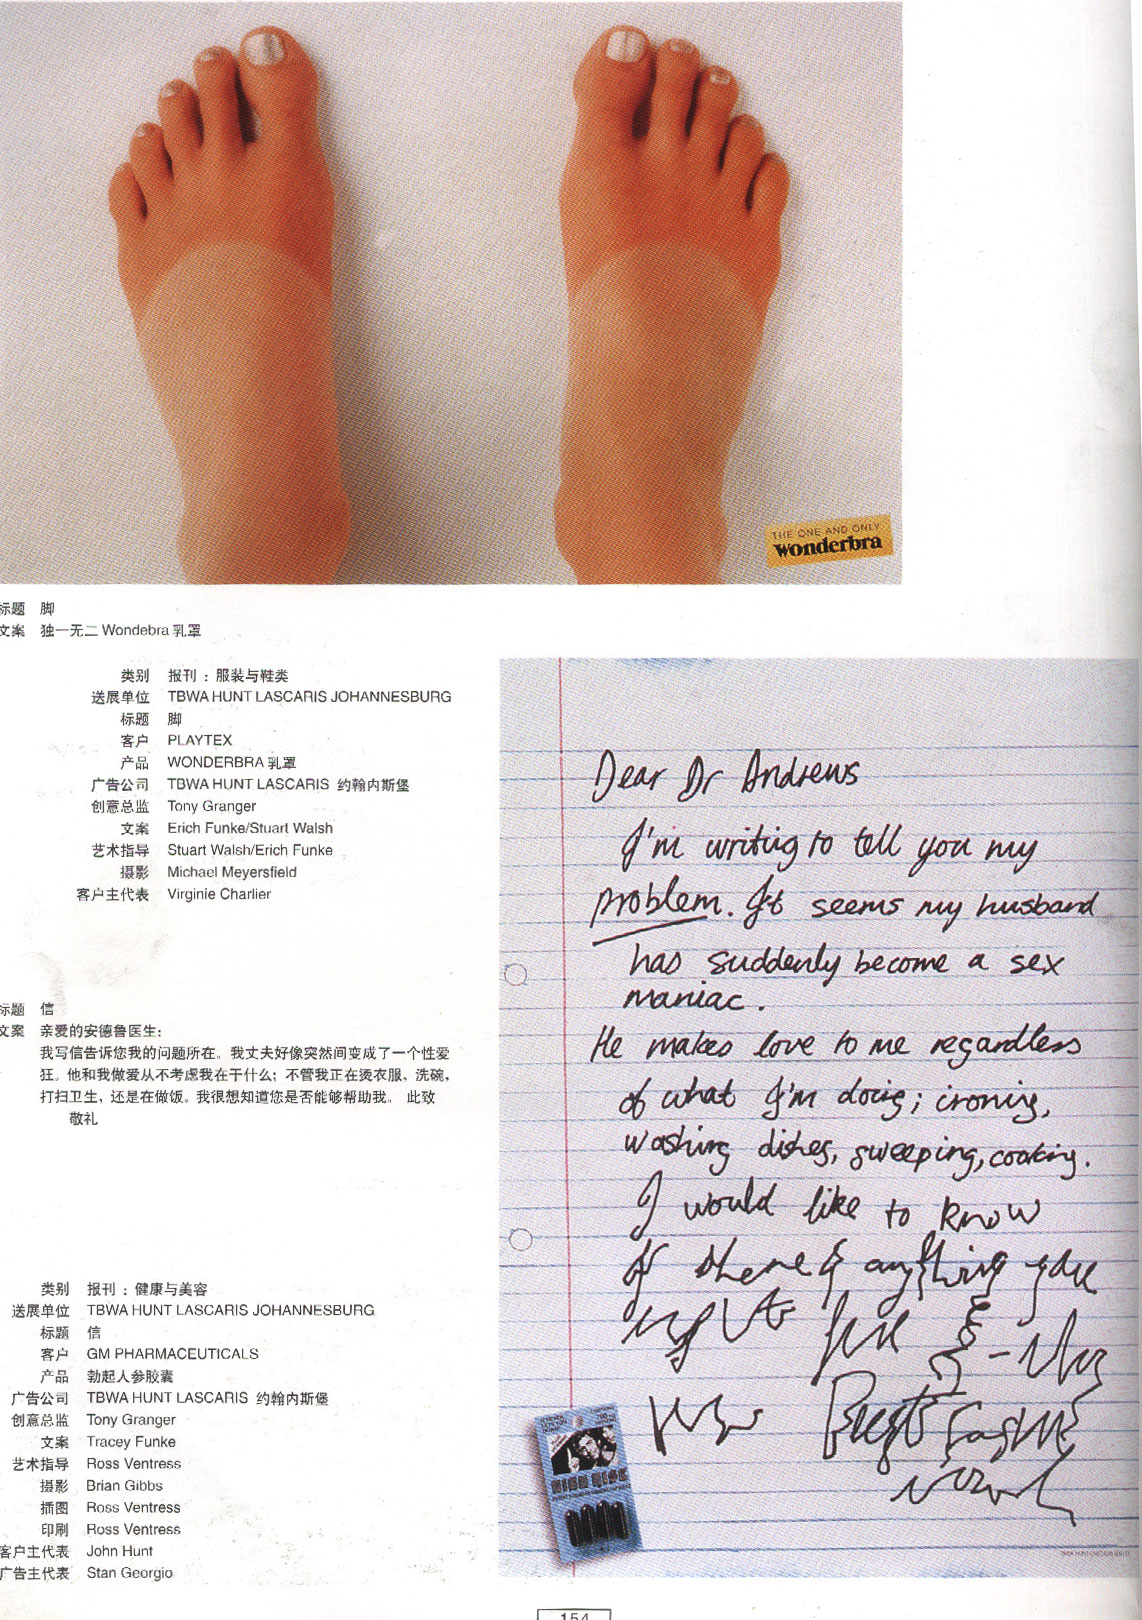 THE ONE AND ONLY
wonderbra
标题 脚
文案 独一无二 Wondebra 乳罩
类别 报刊：服装与鞋类
送展单位 TBWA HUNT LASCARIS JOHANNESBURG
标题 脚
客户 PLAYTEX
产品 WONDERBRA 乳罩
广告公司 TBWA HUNT LASCARIS 约翰内斯堡
创意总监 Tony Granger
文案 Erich Funke/Stuart Walsh
艺术指导 Stuart Walsh/Erich Funke
摄影 Michael Meyersfield
客户主代表 Virginie Charlier
标题 信
文案 亲爱的安德鲁医生：
我写信告诉您我的问题所在。我丈夫好像突然间变成了一个性爱
狂。他和我做爱从不考虑我在干什么；不管我正在烫衣服、洗碗，
打扫卫生，还是在做饭。我很想知道您是否能够帮助我。 此致
敬礼
类别 报刊：健康与美容
送展单位 TBWA HUNT LASCARIS JOHANNESBURG
标题 信
客户 GM PHARMACEUTICALS
产品 勃起人参胶囊
广告公司 TBWA HUNT LASCARIS 约翰内斯堡
创意总监 Tony Granger
文案 Tracey Funke
艺术指导 Ross Ventress
摄影 Brian Gibbs
插图 Ross Ventress
印刷 Ross Ventress
客户主代表 John Hunt
广告主代表 Stan Georgio
Dear Dr Andrews
I'm writing to tell you my
problem. It seems my husband
has suddenly become a sex
maniac.
He makes love to me regardless
of what I'm doing; ironing,
washing dishes, sweeping, cooking.
I would like to know
if there is anything you
154